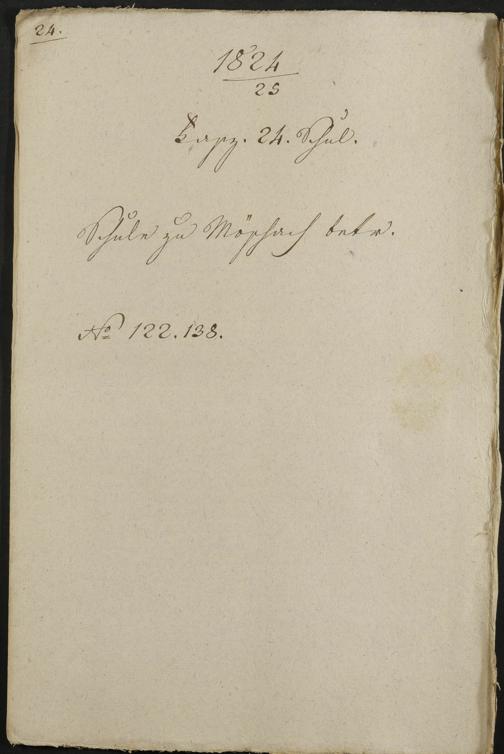 24.
1824
25
Kapz. 24. Schul.
Schule zu Möschach betr.
No 122.138.